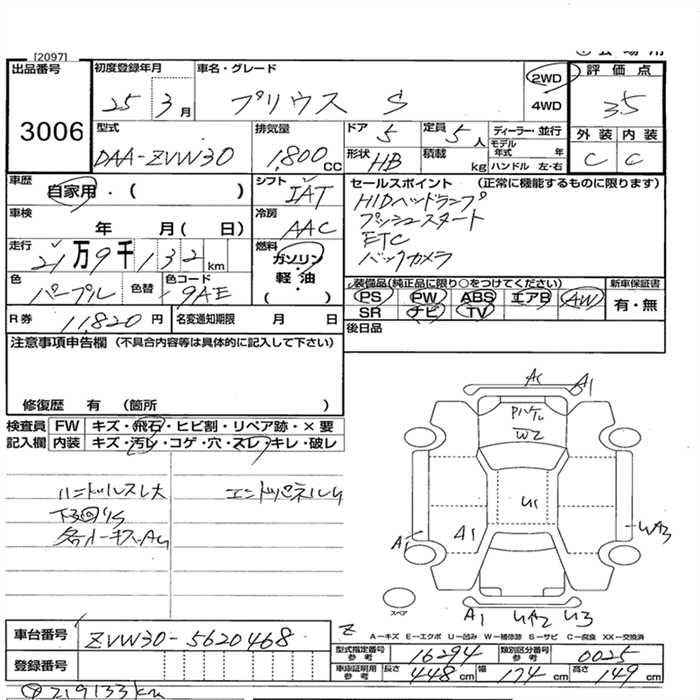 [2097]
出品番号 初度登録年月 車名・グレード 2WD 評価点
3006 25 3月 プリウス S 4WD 3.5
型式 排気量 ドア 5 定員 5人 ディーラー・並行 外装 内装
DAA-ZVW30 1,800cc 形状 HB 積載 kg モデル年式 年 ハンドル 左・右 C C
車歴 自家用・( ) シフト IAT セールスポイント (正常に機能するものに限ります)
車検 年 月( 日) 冷房 AAC HIDヘッドランプ
プッシュスタート
ETC
バックカメラ
走行 21万9千132km 燃料 ガソリン・軽・油 ( )
色 パープル 色替 色コード 9AE
装備品(純正品に限り○をつけてください) 新車保証書
PS PW ABS エアB AW 有・無
SR ナビ TV
R券 11820円 名変通知期限 月 日
後日品
注意事項申告欄(不具合内容等は具体的に記入して下さい)
修復歴 有 (箇所 )
検査員記入欄 FW キズ・飛石・ヒビ割・リペア跡・×要
内装 キズ・汚レ・コゲ・穴・スレ・キレ・破レ
ハンドルスレ大
下回りS
W2
A1
U1
A1
UA3
A1
スペア
A1 UA2 U3
車台番号 ZVW30-5620468
A-キズ E-エクボ U-凹み W-補修跡 S-サビ C-腐食 XX-交換済
型式指定番号 参考 16294 類別区分番号 参考 0025
登録番号 車庫証明用 参考 長さ 448cm 幅 174cm 高さ 149cm
219133km